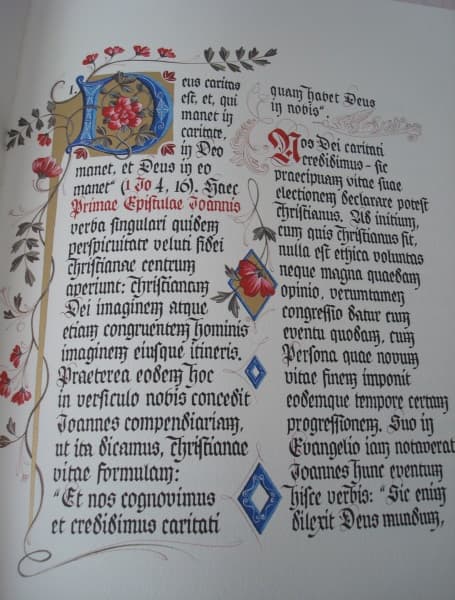 1. Deus caritas
est, et, qui
manet in
caritate,
in Deo
manet, et Deus in eo
manet“ (1 Jo 4, 16). Haec
Primae Epistulae Joannis
verba singulari quidem
perspicuitate veluti fidei
christianae centrum
aperiunt: christianam
Dei imaginem atque
etiam congruentem hominis
imaginem eiusque itineris.
Praeterea eodem hoc
in versiculo nobis concedit
Joannes compendiariam,
ut ita dicamus, christianae
vitae formulam:
“Et nos cognovimus
et credidimus caritati
quam habet Deus
in nobis“.
Nos Dei caritati
credidimus - sic
praecipuam vitae suae
electionem declarare potest
christianus. Ad initium,
cum quis christianus fit,
nulla est ethica voluntas
neque magna quaedam
opinio, verumtamen
congressio datur cum
eventu quodam, cum
Persona quae novum
vitae finem imponit
eodemque tempore certam
progressionem. Suo in
Evangelio iam notaverat
Joannes hunc eventum
hisce verbis: “Sic enim
dilexit Deus mundum,